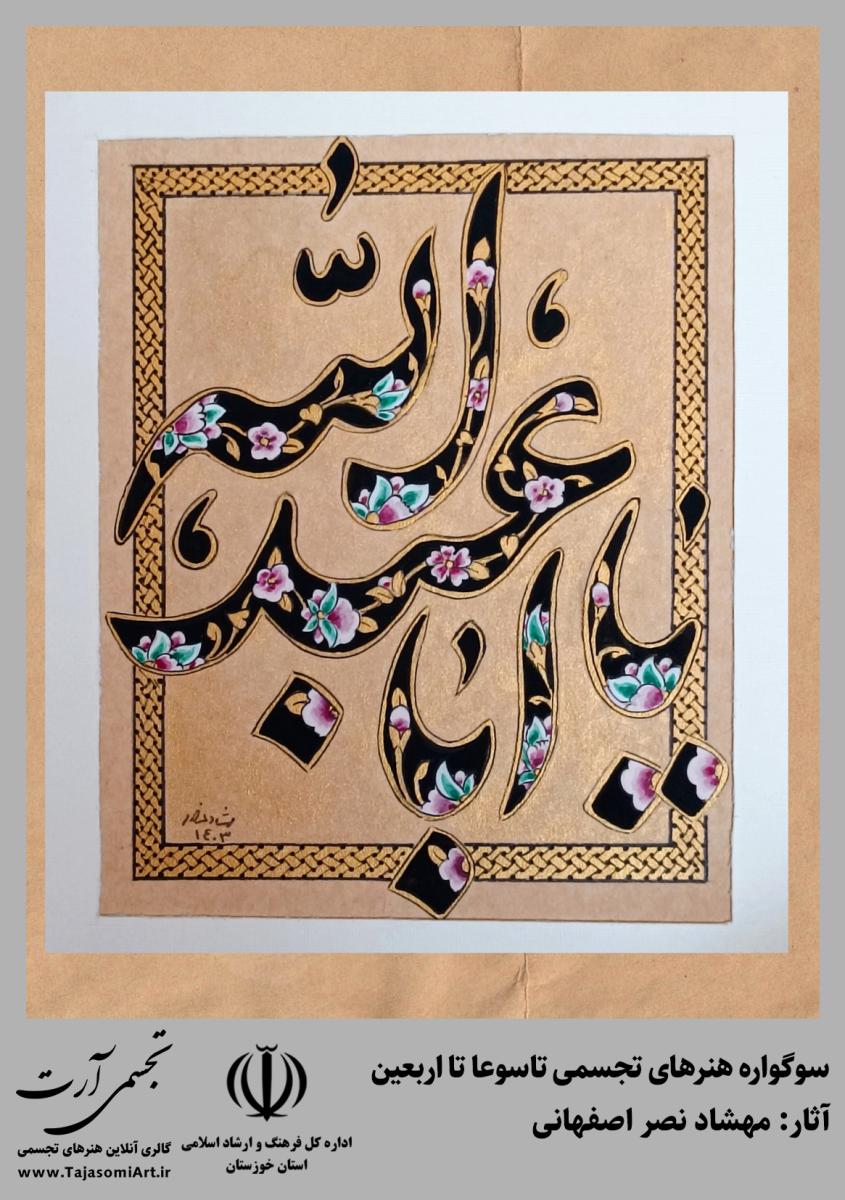 یا اباعبدالله
۱۴۰۳
سوگواره هنرهای تجسمی تاسوعا تا اربعین
آثار: مهشاد نصر اصفهانی
اداره کل فرهنگ و ارشاد اسلامی
استان خوزستان
تجسمی آرت
گالری آنلاین هنرهای تجسمی
www.TajasomiArt.ir